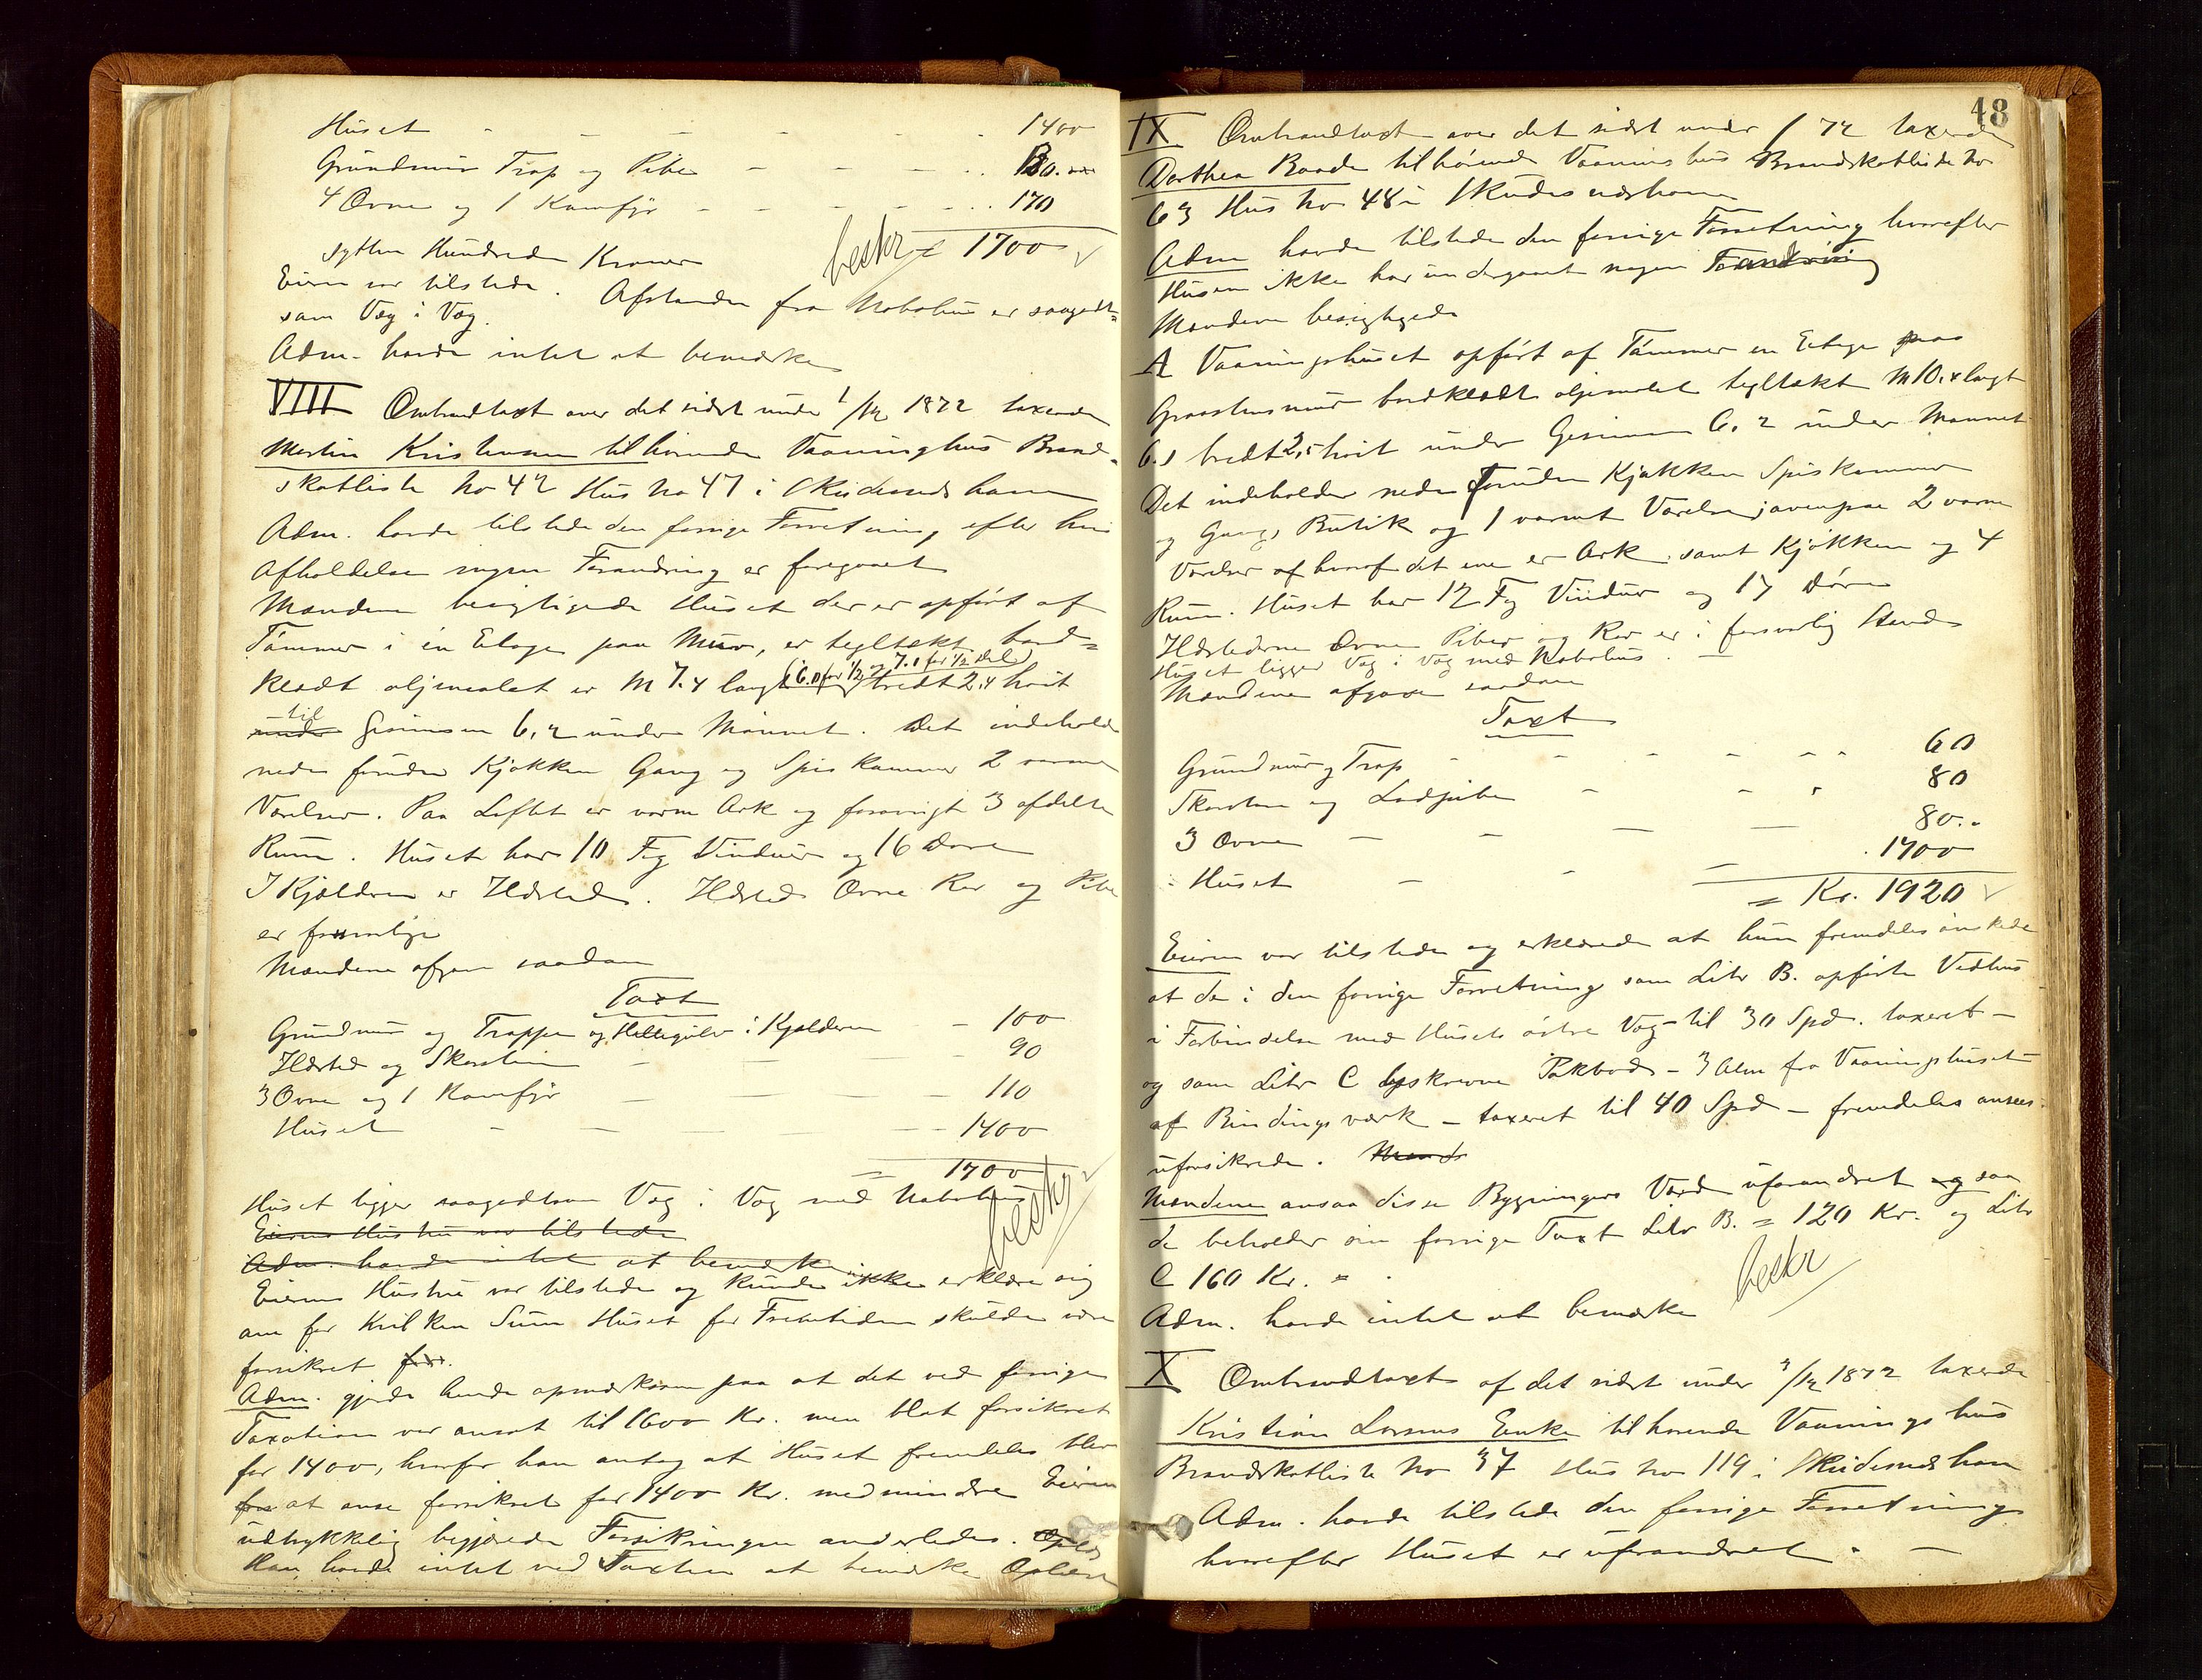 Huset - - - - - - 1400
Grundmur Trap og Pibe - - - . . 130.
4 Ovne og 1 Komfyr - - - - - . . 170
sytten Hundrede Kroner beskr = 1700
Eieren var tilstede. Afstanden fra Nabohus er saagodt=
som Væg i Væg.
Adm. havde intet at bemærke
VIII Ombrandtaxt over det sidst under 1/12 1872 taxerede
Martin Kristensen tilhørende Vaaninghus Brand-
skatliste No 42 Hus No 47 i Skudesnæshavn
Adm. havde tilstede den forrige Forretning, efter hvis
Afholdelse ingen Forandring er foregaaet
Mændene besigtigede Huset der er opført af
Tømmer i en Etage paa Mur, er tegltækt, bord=
klædt oljemalet er M 7.4 langt (6.0 for 1/2 og 7.1 for 1/2 Del) bredt 2,4 høit
til
under Gesimsen 6,2 under Mønnet. Det indeholder
nede foruden Kjøkken Gang og Spiskammer 2 varme
Værelser. Paa Loftet er varm Ark og forøvrigt 3 afdelte
Rum. Huset har 10 Fag Vinduer og 16 Døre
I Kjælderen er Ildsted. Ildsted Ovne Rør og Pibe
er forsvarlige
Mændene afgav saadan
Taxt
Grundmur og Trapper og Hellegulv i Kjælderen - 100
Ildsted og Skorsten - - - 90
3 Ovne og 1 Komfyr - - - 110
Huset - - - - 1400
= 1700
Huset ligger saagodtsom Væg i Væg med Nabohus beskr
Eierens Hustru var tilstede
Adm. havde intet at bemærke
Eierens Hustru var tilstede og kunde ikke erklære sig
om for hvilken Sum Huset for Fremtiden skulde være
forsikret for.
Adm. gjorde hende opmærksom paa at det ved forrige
Taxation var ansat til 1600 Kr. men blot forsikret
for 1400, hvorfor han antog at Huset fremdeles blev
for at anse forsikret for 1400 Kr. medmindre Eieren
udtrykkelig begjærede Forsikringen anderledes. Oplæs
Han havde intet ved Taxten at bemærke Oplæst
48
IX Ombrandtaxt over det sidst under / 72 taxerede
Dorthea Baade tilhørende Vaaningshus Brandskatliste No
63 Hus No 48 i Skudesnæshavn
Adm havde tilstede den forrige Forretning hvorefter
Husene ikke har undergaaet nogen Forandring
Mændene besigtigede
A Vaaningshuset opført af Tømmer en Etage paa
Graastensmur bordklædt oljemalet tegltækt M 10.4 langt
6.1 bredt 2,5 høit under Gesimsen 6.2 under Mønnet
Det indeholder nede foruden Kjøkken Spiskammer
og Gang, Butik og 1 varmt Værelse, ovenpaa 2 varme
Værelser af hvoraf det ene er Ark samt Kjøkken og 4
Rum. Huset har 12 Fag Vinduer og 17 Døre
Ildstederne Ovne Piber og Rør er i forsvarlig Stand
Huset ligger Væg i Væg med Nabohus.
Mændene afgave saadan
Taxt
Grundmur og Trap - - - - - 60
Skorsten og Lodpibe - - - 80
3 Ovne - - - - 80..
Huset - - - 1700
= Kr. 1920
Eieren var tilstede og erklærede at hun fremdeles ønskede
at de i den forrige Forretning som Litr B. opførte Vedhus
i Forbindelse med Husets østre Væg - til 30 Spd. taxeret -
og som Litr C beskrevne Pakbod - 3 Alen fra Vaaningshuset
af Bindingsværk - taxeret til 40 Spd - fremdeles ansees
uforsikrede. Mænd
Mændene ansaa disse Bygningers Værd uforandret og saa
de beholder sin forrige Taxt Litr B. = 120 Kr. og Litr
C 160 Kr. =
Adm. havde intet at bemærke beskr
X Ombrandtaxt af det sidst under 3/12 1872 taxerede
Kristian Larsens Enke tilhørende Vaaningshus
Brandskatliste No 37 Hus No 119 i Skudesnæshavn
Adm. havde tilstede den forrige Forretning
hvorefter Huset er uforandret. -